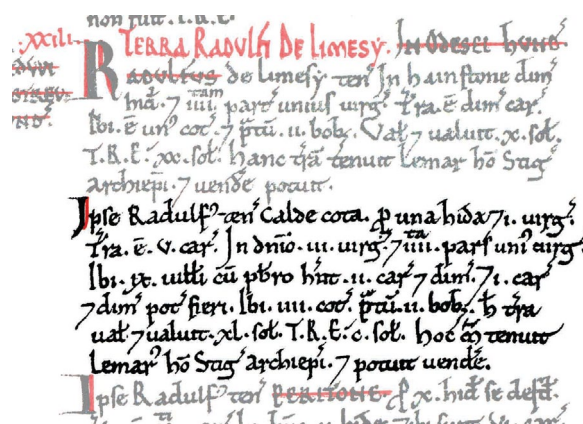 non fuit. T.R.E.
.XXIII. TERRA RADULFI DE LIMESY. In Odesei hund
RADULFUS de Limesy ten̄ In hainstone dim̄
hid̄. ⁊ iiii.tam part̄ unius uirg̃. Tr̄a. ē dim̄ car̃.
Ibi. ē un᷒ cot̃. ⁊ p̄tū. ii. bob᷒. Val̃. ⁊ ualuit .x. sol̃.
T.R.E. xx. sol̃. hanc tr̄a tenuit Lemar hō Stig̃
archiep̄i. ⁊ uende potuit.
Ipse Radulf᷒ ten̄ Caldecota. ꝓ una hida ⁊ i. uirg̃.
Tr̄a. ē. v. car̃. In dn̄io .iii. uirg̃. ⁊ iiii.ta pars uni᷒ uirg̃.
Ibi .ix. uilli cū pb̄ro hn̄t .ii. car̃ ⁊ dim̄. ⁊ i. car̃
⁊ dim̄ pot̃ fieri. Ibi. iiii. cot̃. p̄tū. ii. bob᷒. h̄ tr̄a
ual̃ ⁊ ualuit .xl. sol̃. T.R.E. c. sol̃. hoc m̃ tenuit
Lemar᷒ hō Stig̃ archiep̄i. ⁊ potuit uende.
Ipse Radulf᷒ ten̄ PERITONE ꝓ x. hid̄ se defd̄.